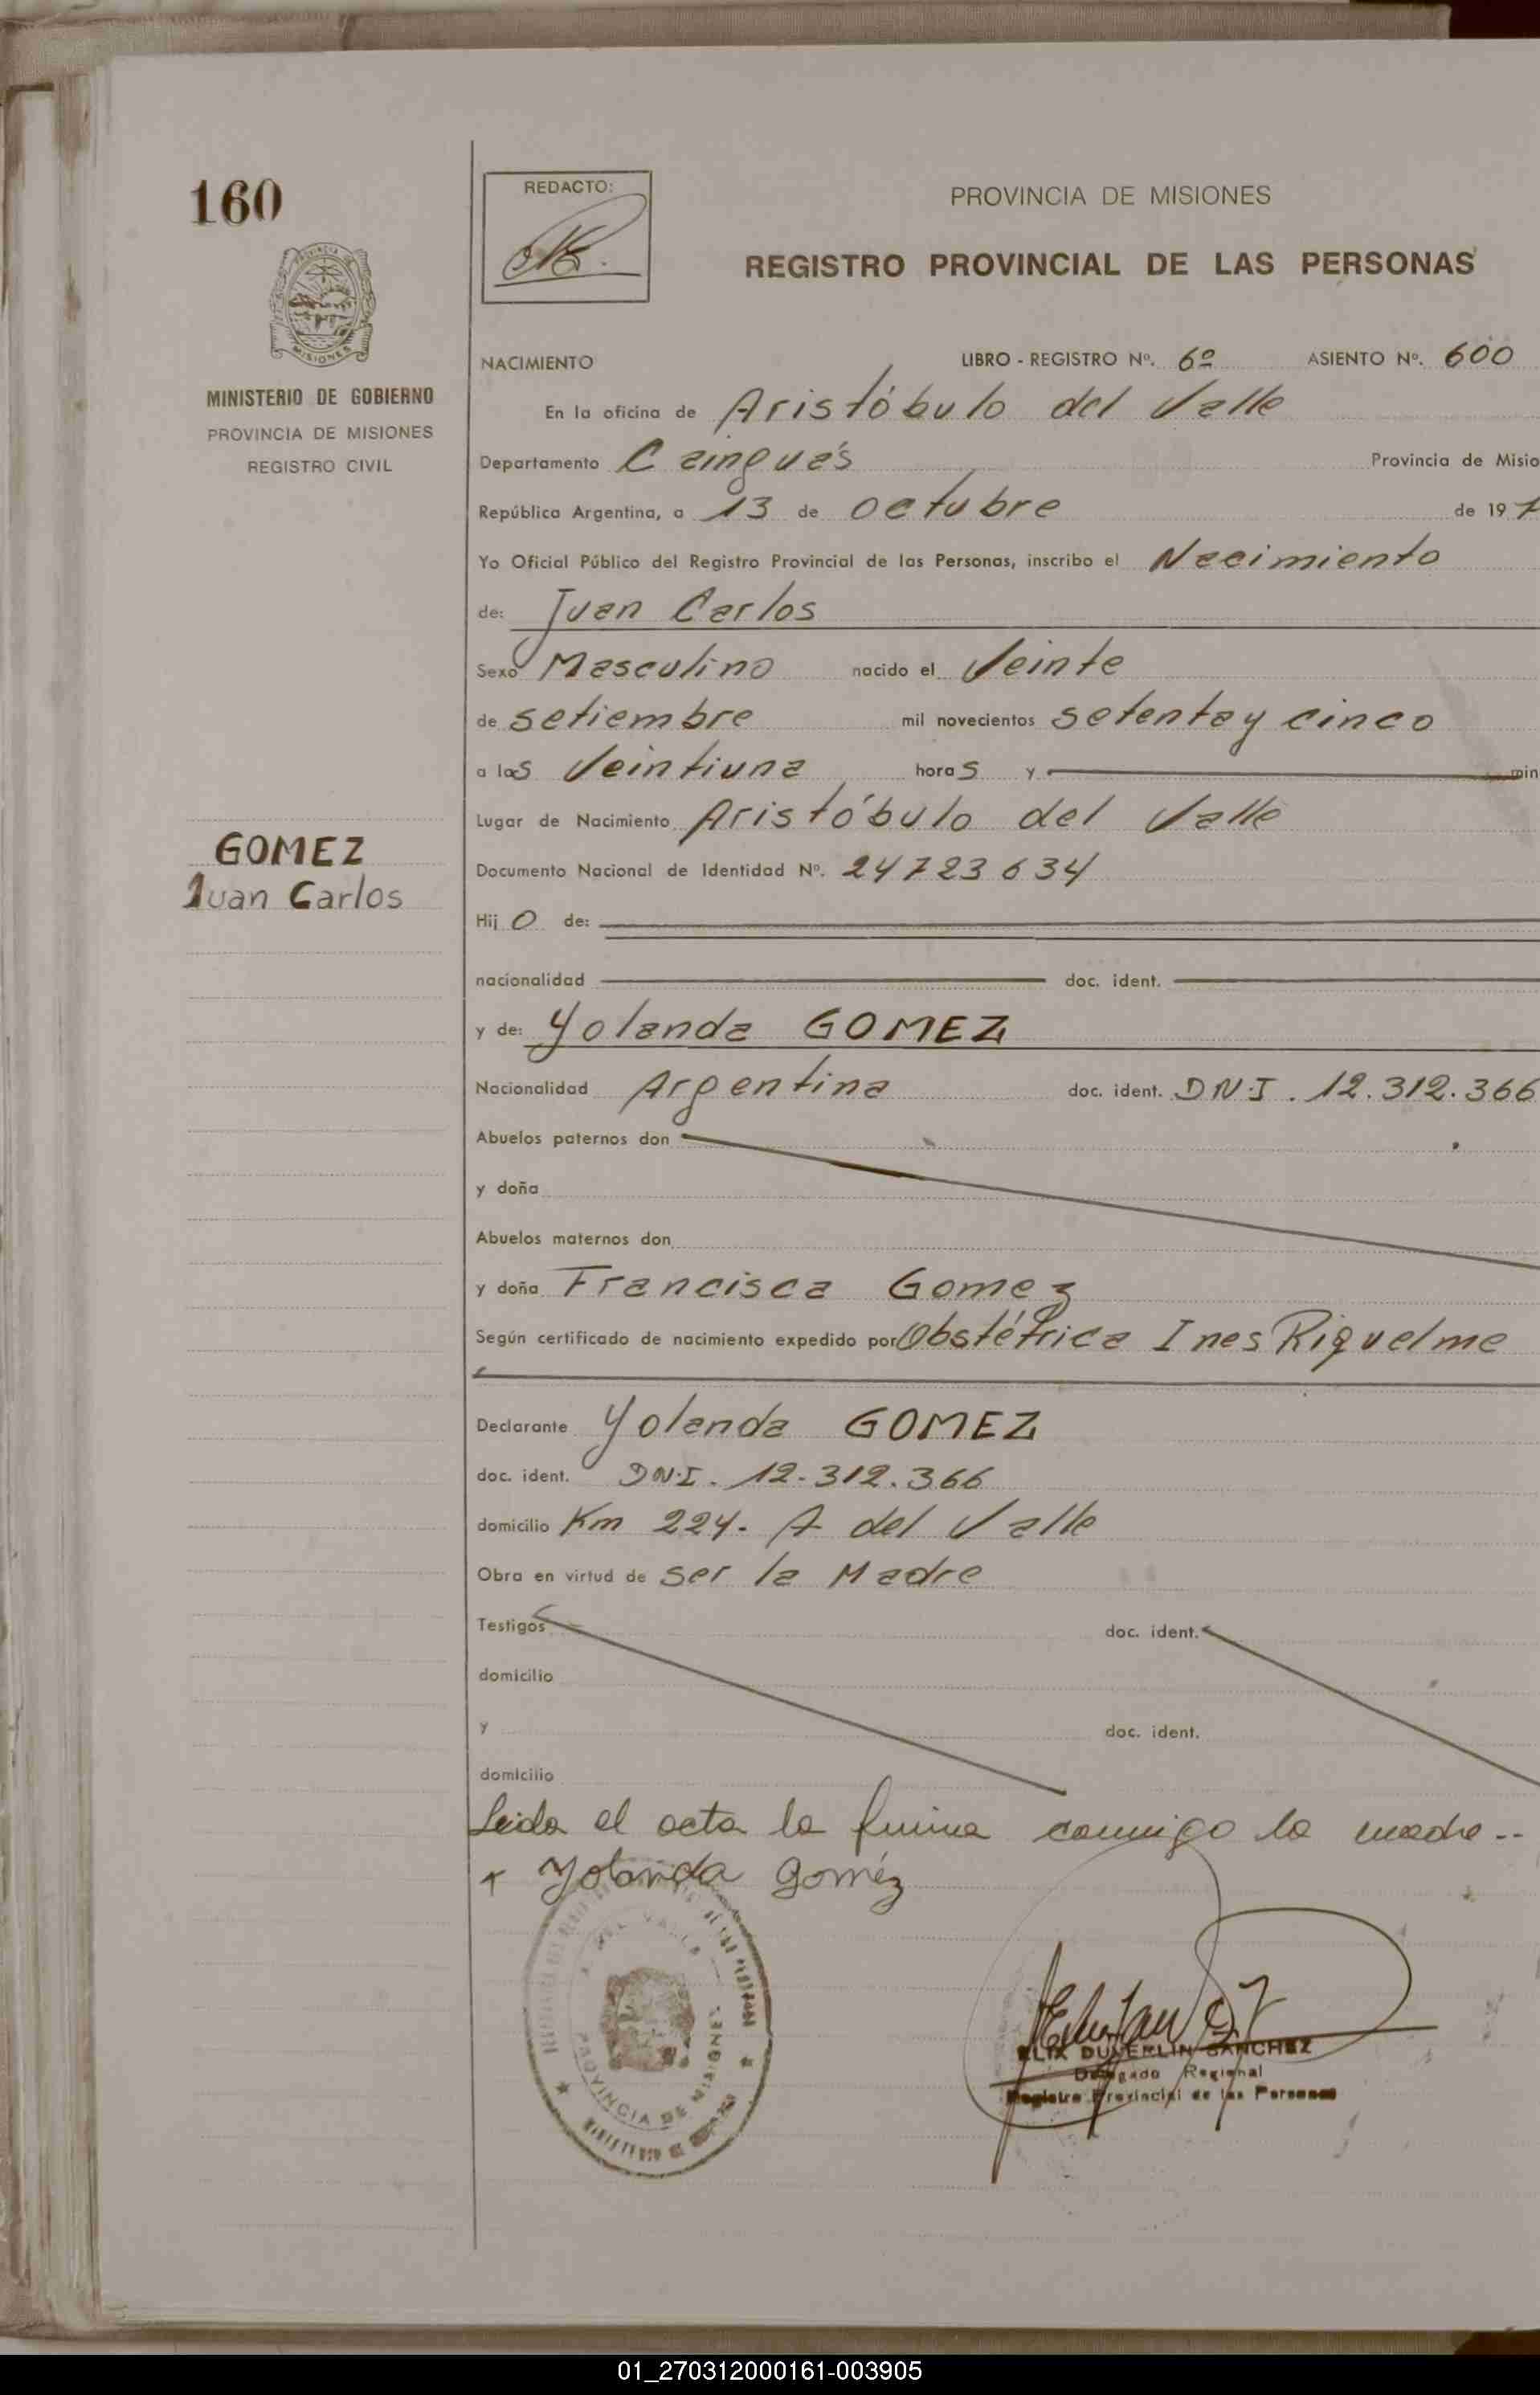 160
REDACTO:
PROVINCIA DE MISIONES
REGISTRO PROVINCIAL DE LAS PERSONAS
MISIONES
MINISTERIO DE GOBIERNO
PROVINCIA DE MISIONES
REGISTRO CIVIL
NACIMIENTO LIBRO - REGISTRO Nº. 6º ASIENTO Nº. 600
En la oficina de Aristóbulo del Valle
Departamento Cainguás Provincia de Misio
República Argentina, a 13 de octubre de 197
Yo Oficial Público del Registro Provincial de las Personas, inscribo el Nacimiento
de: Juan Carlos
Sexo Masculino nacido el Veinte
de setiembre mil novecientos setenta y cinco
a las Veintiuna horas y min
Lugar de Nacimiento Aristóbulo del Valle
GOMEZ
Juan Carlos
Documento Nacional de Identidad Nº. 24723634
Hijo de:
nacionalidad doc. ident.
y de: Yolanda GOMEZ
Nacionalidad Argentina doc. ident. DNI. 12.312.366
Abuelos paternos don
y doña
Abuelos maternos don
y doña Francisca Gomez
Según certificado de nacimiento expedido por Obstétrica Ines Riquelme
Declarante Yolanda GOMEZ
doc. ident. DN.I. 12.312.366
domicilio Km 224. A del Valle
Obra en virtud de ser la Madre
Testigos doc. ident.
domicilio
y doc. ident.
domicilio
Leida el acta la firma conmigo la madre--
Yolanda Goméz
DEL VALLE
PROVINCIA DE MISIONES
SANCHEZ
Delegado Regional
Registro Provincial de las Personas
01_270312000161-003905